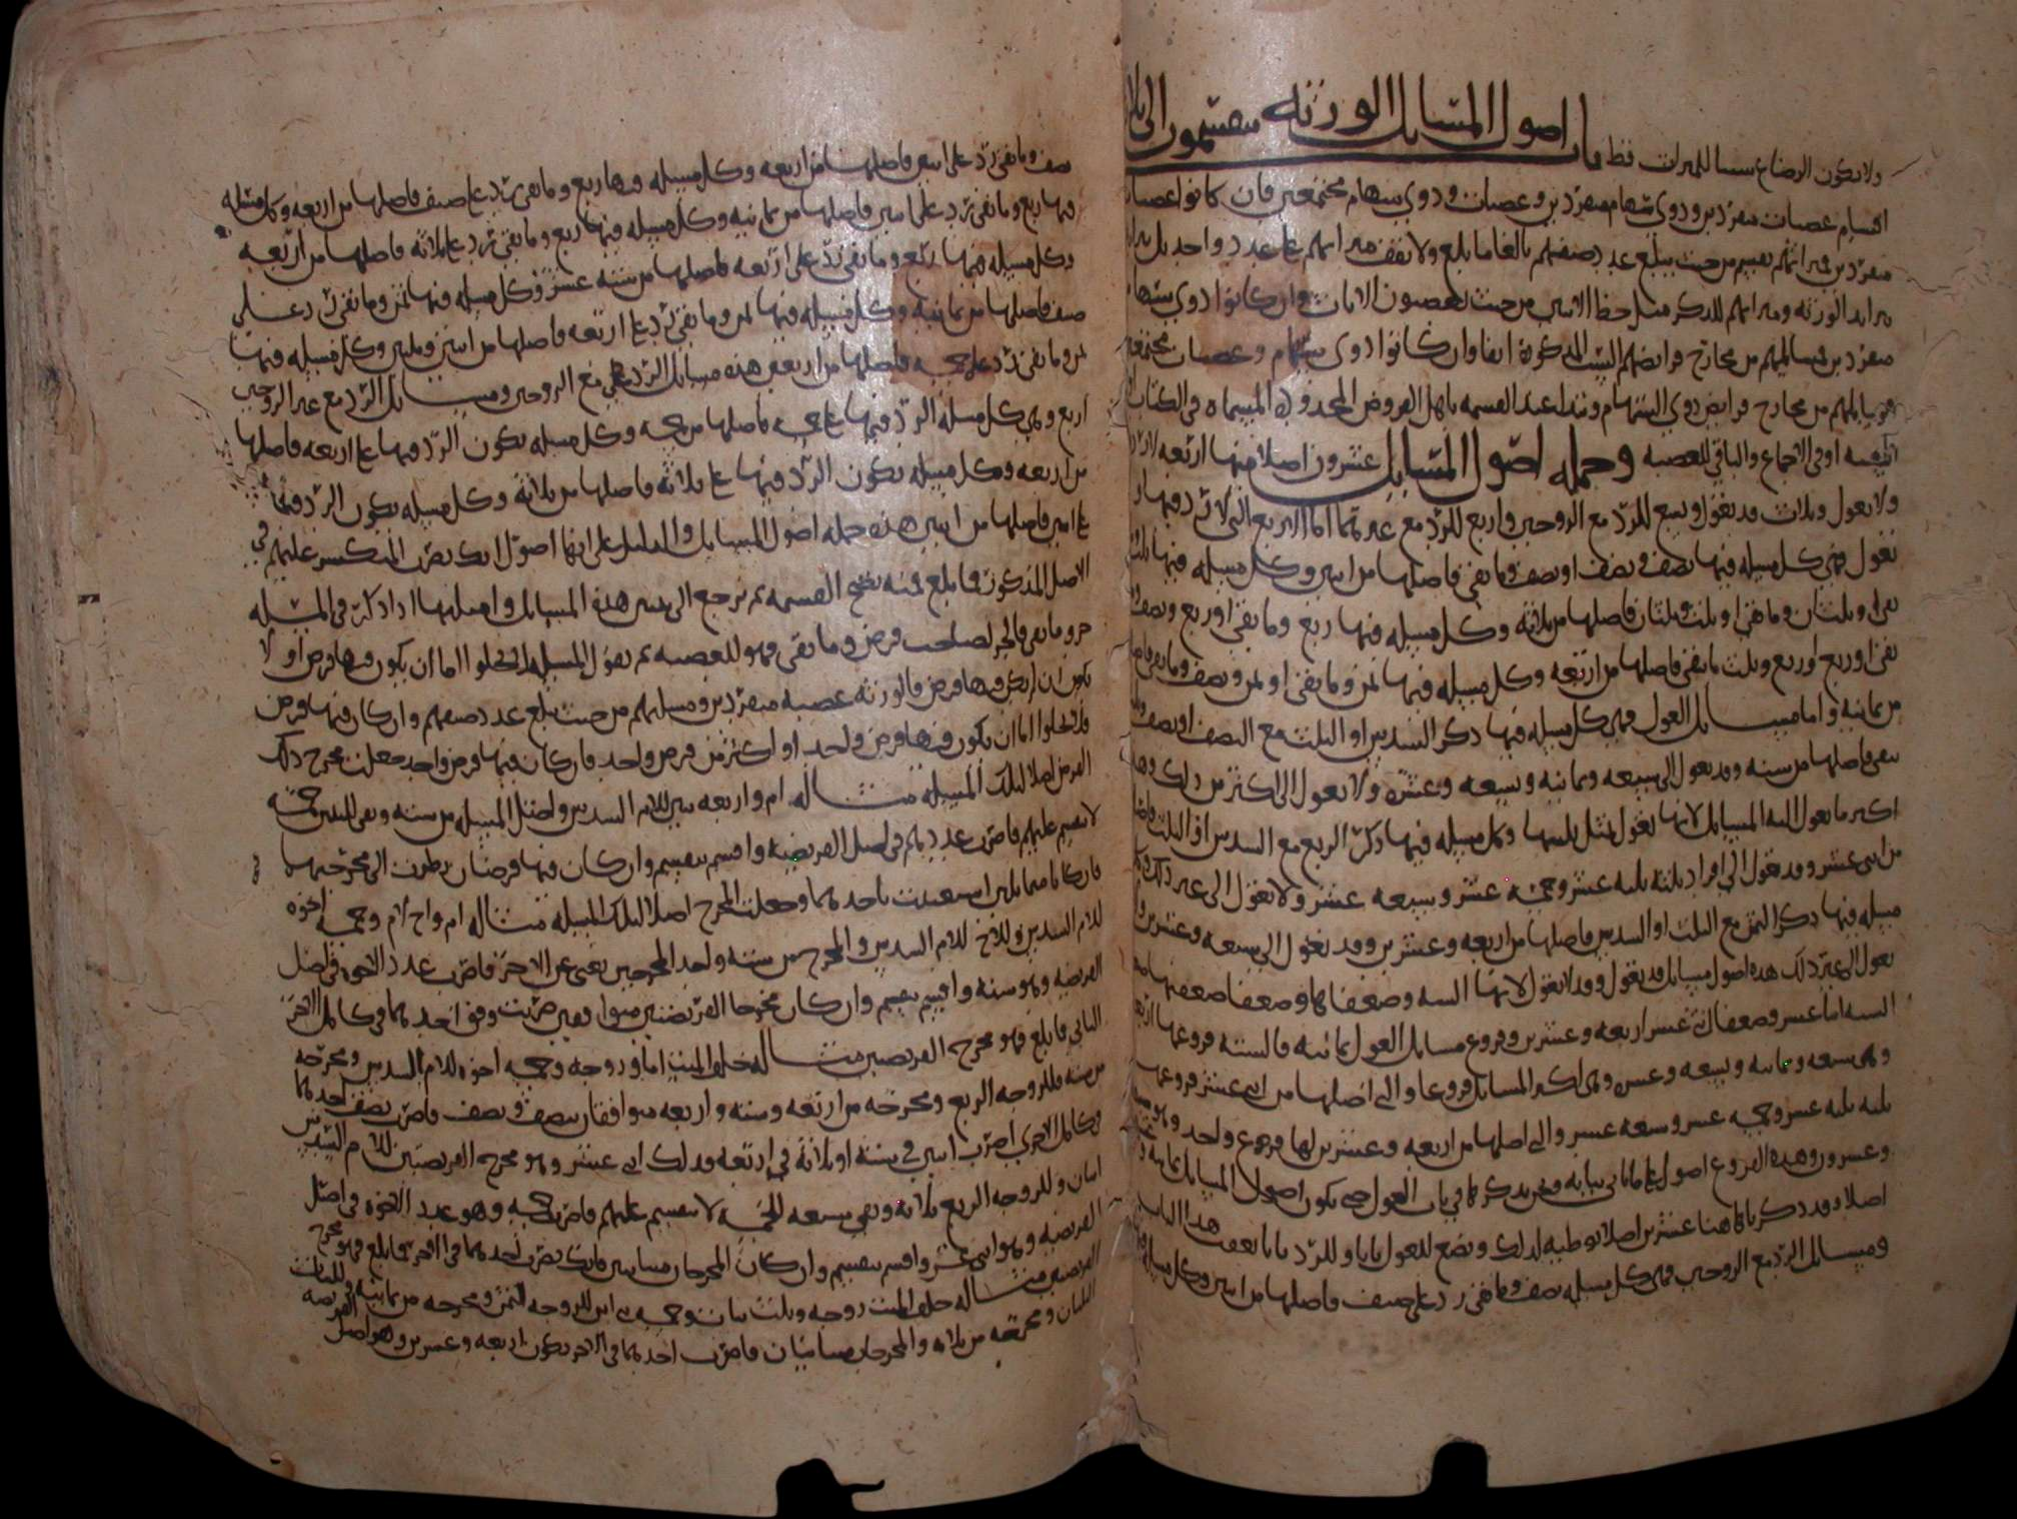 ولا يكون الرضاع سببا للميراث قط باب اصول المسايل الورثه ينقسمون الى
اقسام عصبات منفردين وذوي سهام منفردين وعصبات وذوي سهام مجتمعين فان كانوا عصبات
منفردين فميراثهم يقسم من حيث يبلغ عدد صنفهم بالغا ما بلغ ولا يقف ميراثهم على عدد واحد بل
الورثه وميراثهم للذكر مثل حظ الانثيين من حيث يعصبون الاناث وان كانوا ذوي سهام
منفردين فمسايلهم من مخارج فرايضهم الست المذكورة انفا وان كانوا ذوي سهام وعصبات مجتمعين
من مخارج فرايض ذوي السهام ونبدا عند القسمه باهل الفروض المسماه في الكتاب
او في الاجماع والباقي للعصبه وجمله اصول المسايل عشرون اصلا منها اربعه
ولا تعول وثلاث قد تعول وتسع للرد مع الزوجين واربع للرد مع غيرهما اما الاربع التي لا رد فيها ولا
تعول فهي كل مسيله فيها نصف ونصف او نصف وما بقي فاصلها من اثنين وكل مسيله فيها ثلث وما
بقي او ثلثان وما بقي او ثلث وثلثان فاصلها من ثلاثه وكل مسيله فيها ربع وما بقي او ربع ونصف وما
بقي او ربع وثلث ما بقي فاصلها من اربعه وكل مسيله فيها ثمن وما بقي او ثمن ونصف وما بقي فاصلها
من ثمانيه واما مسايل العول فهي كل مسيله فيها ذكر السدس او الثلث مع النصف او نصف
بقي فاصلها من سته وقد تعول الى سبعه وثمانيه وتسعه وعشره ولا تعول الى اكثر من ذلك وهذا
اكثر ما تعول اليه المسايل لانها تعول بمثل ثلثيها وكل مسيله فيها ذكر الربع مع السدس او الثلث فاصلها
من اثني عشر وقد تعول الى افراد ثلثه ثلثه عشر وخمسه عشر وسبعه عشر ولا تعول الى غير ذلك وكل
مسيله فيها ذكر الثمن مع الثلث او السدس فاصلها من اربعه وعشرين وقد تعول الى سبعه وعشرين ولا
تعول الى غير ذلك هذه اصول مسايل قد تعول وقد لا تعول لانها السته وضعفها وضعف ضعفها
السته اثنا عشر وضعف اثني عشر اربعه وعشرين وفروع مسايل العول ثمانيه فالسته فروعها اربعه
وهي سبعه وثمانيه وتسعه وعشره وهي اكثر المسايل فروعا والتي اصلها من اثني عشر فروعها
ثلثه ثلثه عشر وخمسه عشر وسبعه عشر والتي اصلها من اربعه وعشرين لها فروع واحد وهو سبعه
وعشرون وهذه الفروع اصول على ما ياتي بيانه ونحن نذكرها في باب العول حتى تكون اصول المسايل ثمانيه و
اصلا وقد ذكرناها هنا عشرين اصلا توطيه لذلك ونضع للعول بابا وللرد بابا بعون هذا الباب
ومسايل الرد مع الزوجين فهي كل مسيله نصف وما بقي رد على صنف فاصلها من اثنين وكل مسيله
نصف وما بقي رد على اثنين فاصلها من اربعه وكل مسيله فيها ربع وما بقي رد على صنف فاصلها من اربعه وكل مسيله
فيها ربع وما بقي رد على اثنين فاصلها من ثمانيه وكل مسيله فيها ربع وما بقي رد على ثلاثه فاصلها من اربعه
وكل مسيله فيها ربع وما بقي رد على اربعه فاصلها من سته عشر وكل مسيله فيها ثمن وما بقي رد على
صنف فاصلها من ثمانيه وكل مسيله فيها ثمن وما بقي رد على اربعه فاصلها من اثنين وثلثين وكل مسيله فيها
ثمن وما بقي رد على خمسه فاصلها من اربعين هذه مسايل الرد مع الزوجين ومسايل الرد مع غير الزوجين
اربع وهي كل مسيله الرد فيها على خمسه فاصلها من خمسه وكل مسيله يكون الرد فيها على اربعه فاصلها
من اربعه وكل مسيله يكون الرد فيها على ثلاثه فاصلها من ثلاثه وكل مسيله يكون الرد فيها
على اثنين فاصلها من اثنين هذه جمله اصول المسايل والدليل على انها اصول انك تضرب المنكسر عليهم في
الاصل المذكور فما بلغ فمنه تصح القسمه ثم نرجع الى هذه المسايل واصلها اذا ذكر في المسيله
جزو وما بقي فالجزو لصاحب فرض وما بقي فهو للعصبه ثم نقول المسيله لا تخلوا اما ان يكون فيها فرض او لا
يكون ان لم يكن فيها فرض فالورثه عصبه منفردين ومسيلتهم من حيث يبلغ عدد صنفهم وان كان فيها فرض
فلا تخلوا اما ان يكون فيها فرض واحد او اكثر من فرض واحد فان كان فيها فرض واحد جعلت مخرج ذلك
الفرض اصلا لتلك المسيله مثاله ام واربعه بنين للام السدس واصل المسيله من سته وبقي للبنين خمسه
لا تنقسم عليهم فاضرب عددهم في اصل الفريضه واقسم تنقسم وان كان فيها فرضان نظرت الى مخرجيهما
فان كانا متماثلين استغنيت باحدهما وجعلت المخرج اصلا لتلك المسيله مثاله ام واخ لام وخمسه اخوه
للام السدس وللاخ للام السدس والمخرج من سته واحد المخرجين يغني عن الاخر فاضرب عدد الاخوه في اصل
الفريضه وهو سته واقسم تنقسم وان كان مخرجا الفريضتين متوافقين ضربت وفق احدهما في كامل الاخر
الثاني فما بلغ فهو مخرج الفريضتين مثاله خلف الميت اما وزوجه وخمسه اخوه للام السدس ومخرجه
من سته وللزوجه الربع ومخرجه من اربعه وسته واربعه متوافقان بنصف ونصف فاضرب نصف احدهما
في كامل الاخر اضرب اثنين في سته او ثلاثه في اربعه فذلك اثني عشر وهو مخرج الفريضتين للام السدس
اثنان وللزوجه الربع ثلاثه وبقي سبعه للخمسه لا تنقسم عليهم فاضرب خمسه وهو عدد الاخوه في اصل
الفريضه وهو اثني عشر واقسم تنقسم وان كان المخرجان متباينين فانك تضرب احدهما في الاخر فما بلغ فهو مخرج
الفريضتين مثاله خلف الميت زوجه وثلث بنات وخمسه بني ابن للزوجه الثمن ومخرجه من ثمانيه وللبنات
الثلثان ومخرجه من ثلاثه والمخرجان متباينان فاضرب احدهما في الاخر يكون اربعه وعشرين وهو اصل الفريضه